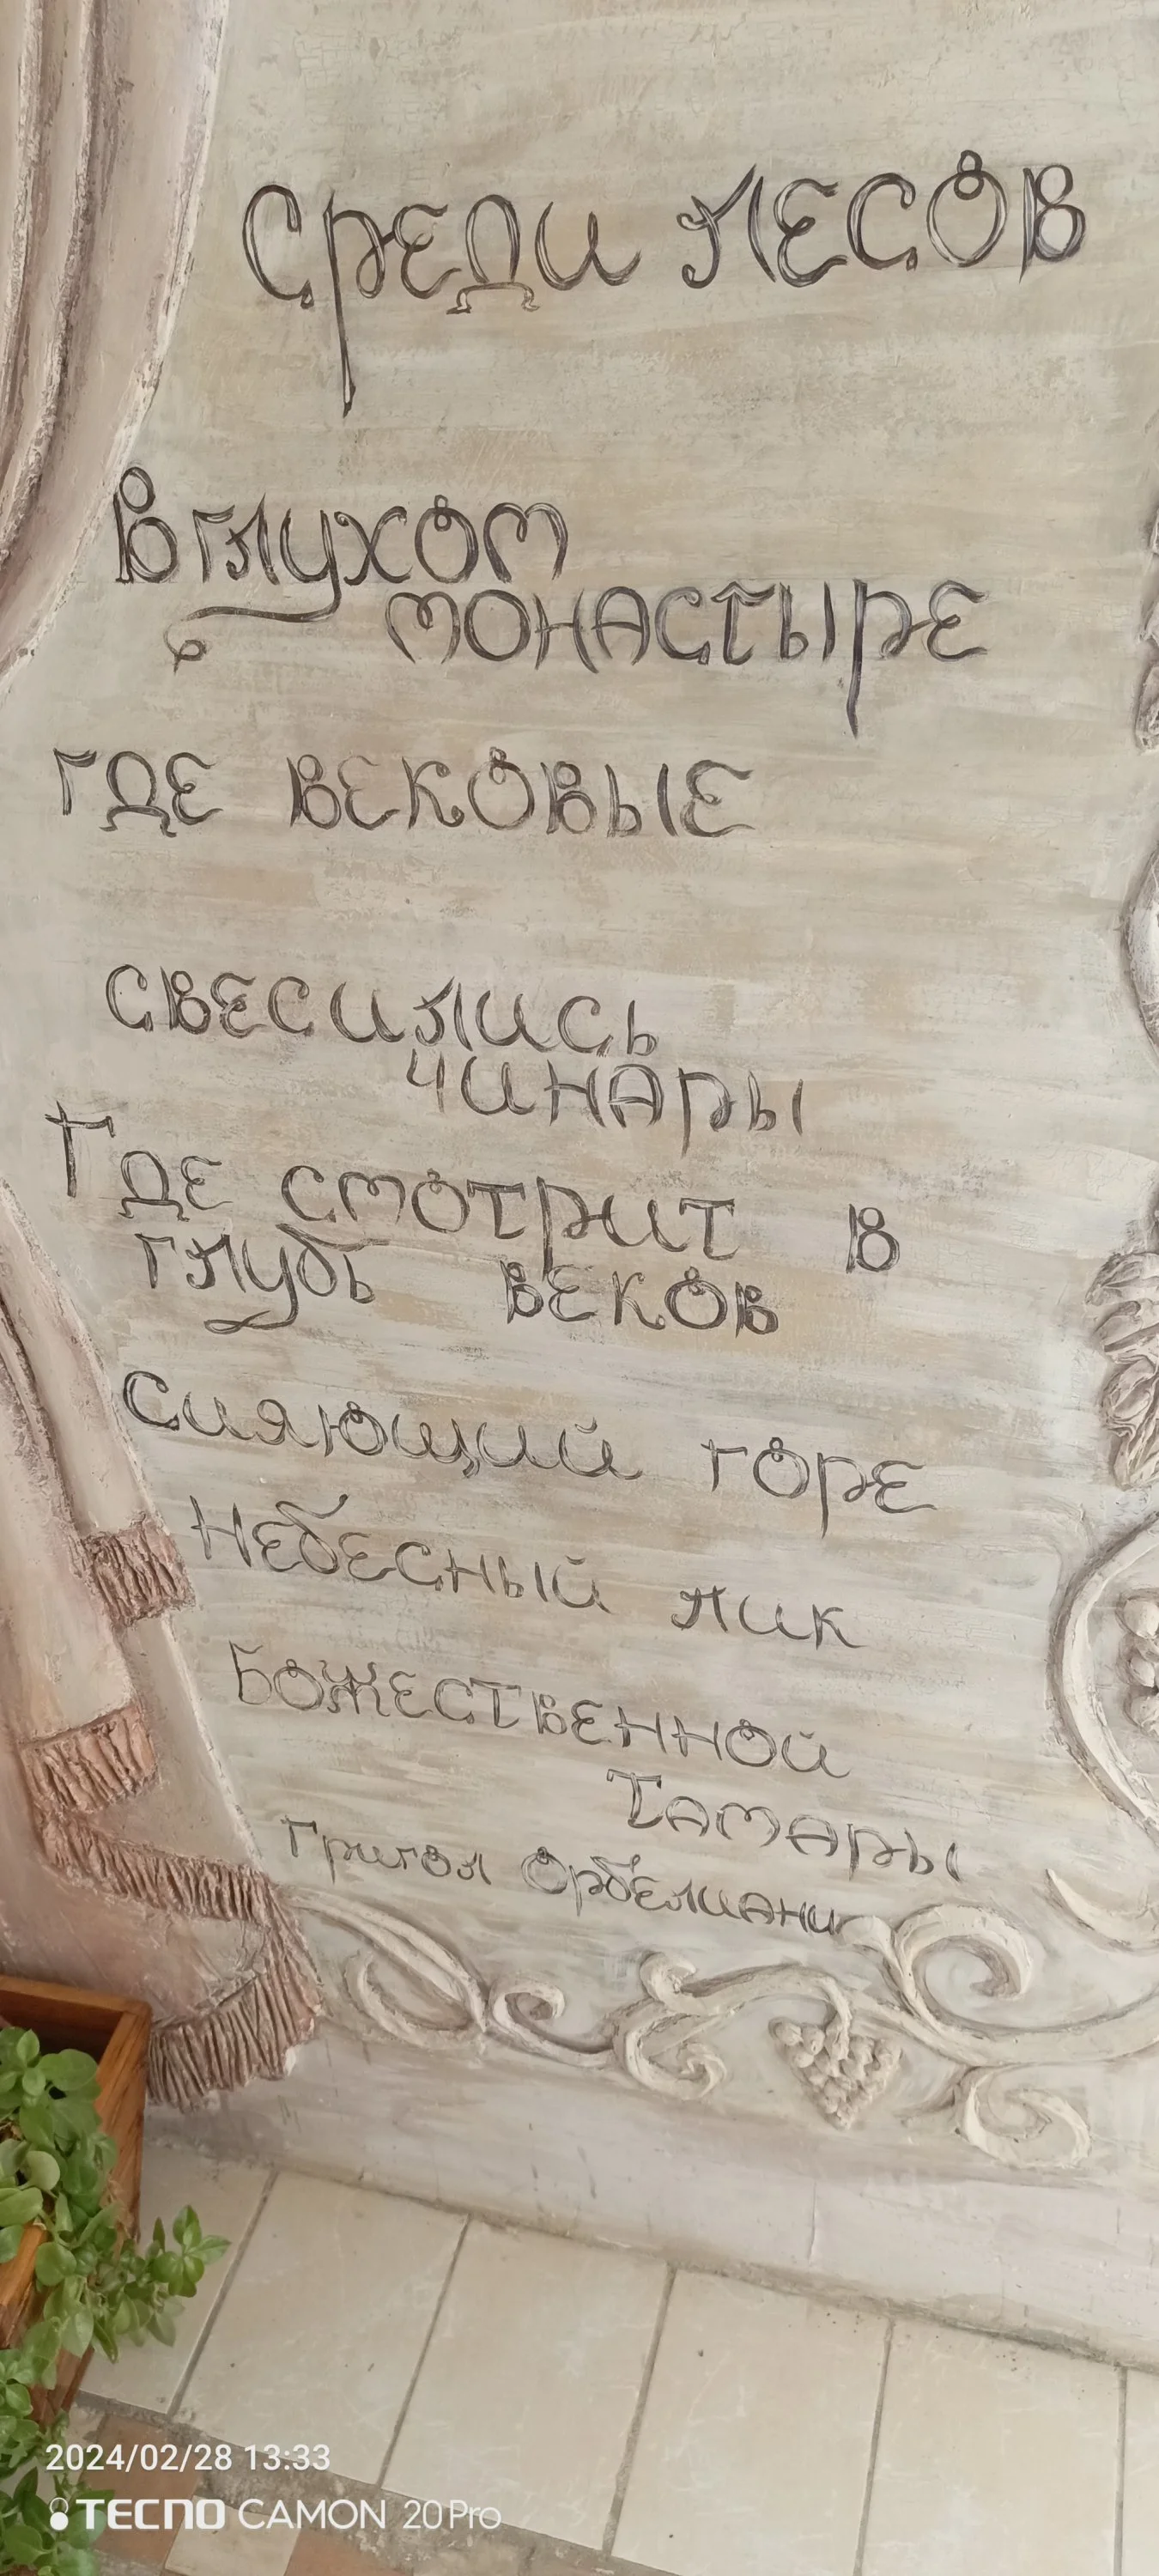 Среди лесов
В глухом
монастыре
где вековые
свесились
чинары
Где смотрит в
глубь веков
Сияющий горе
Небесный лик
Божественной
Тамары
Григол Орбелиани
2024/02/28 13:33
TECNO CAMON 20 Pro